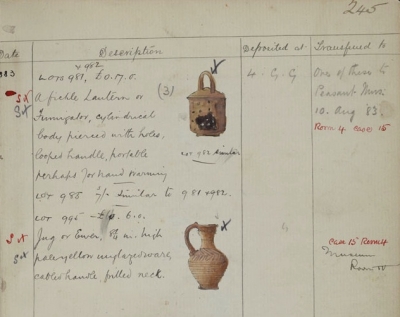 245
Date
Description
Deposited at
Transferred to
v 982
Lots 981, £0.17.0.
A fictile Lantern or
Fumigator, cylindrical
body pierced with holes,
looped handle, portable
perhaps for hand warming
(3)
Lot 982 similar
4. G. G
One of these to
Peasant Mus.
10. Aug 83.
Room 4 case 15
Lot 985 similar to 981 & 982.
Lot 995 6.0.
Jug or Ewer, high
pale yellow unglazed ware,
cabled handle, frilled neck.
Case 15 Room 4
Museum
Room